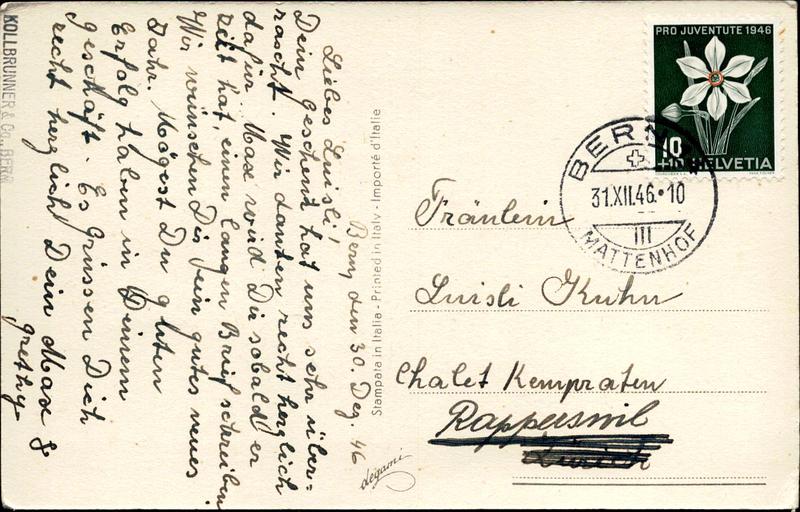 Bern, den 30. Dez. 46
Liebes Luisli!
Dein Geschenk hat uns sehr über=
rascht. Wir danken recht herzlich
dafür. Max wird Dir sobald er
Zeit hat, einen langen Brief schreiben.
Wir wünschen Dir ein gutes neues
Jahr. Mögest Du guten
Erfolg haben in Deinem
Geschäft. Es Grüssen Dich
recht herzlich Dein Max &
Grethy.
KOLLBRUNNER & Co., BERN
Stampata in Italia - Printed in Italy - Importé d'Italie
degami
PRO JUVENTUTE 1946
10
+10 HELVETIA
BERN
31.XII.46.10
III
MATTENHOF
Fräulein
Luisli Kuhn
Chalet Kempraten
Rapperswil
Zürich